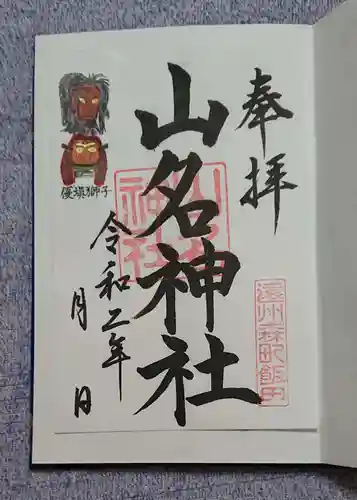 奉拝
山名神社
山名神社
遠州森町飯田
令和二年
月 日
優填獅子